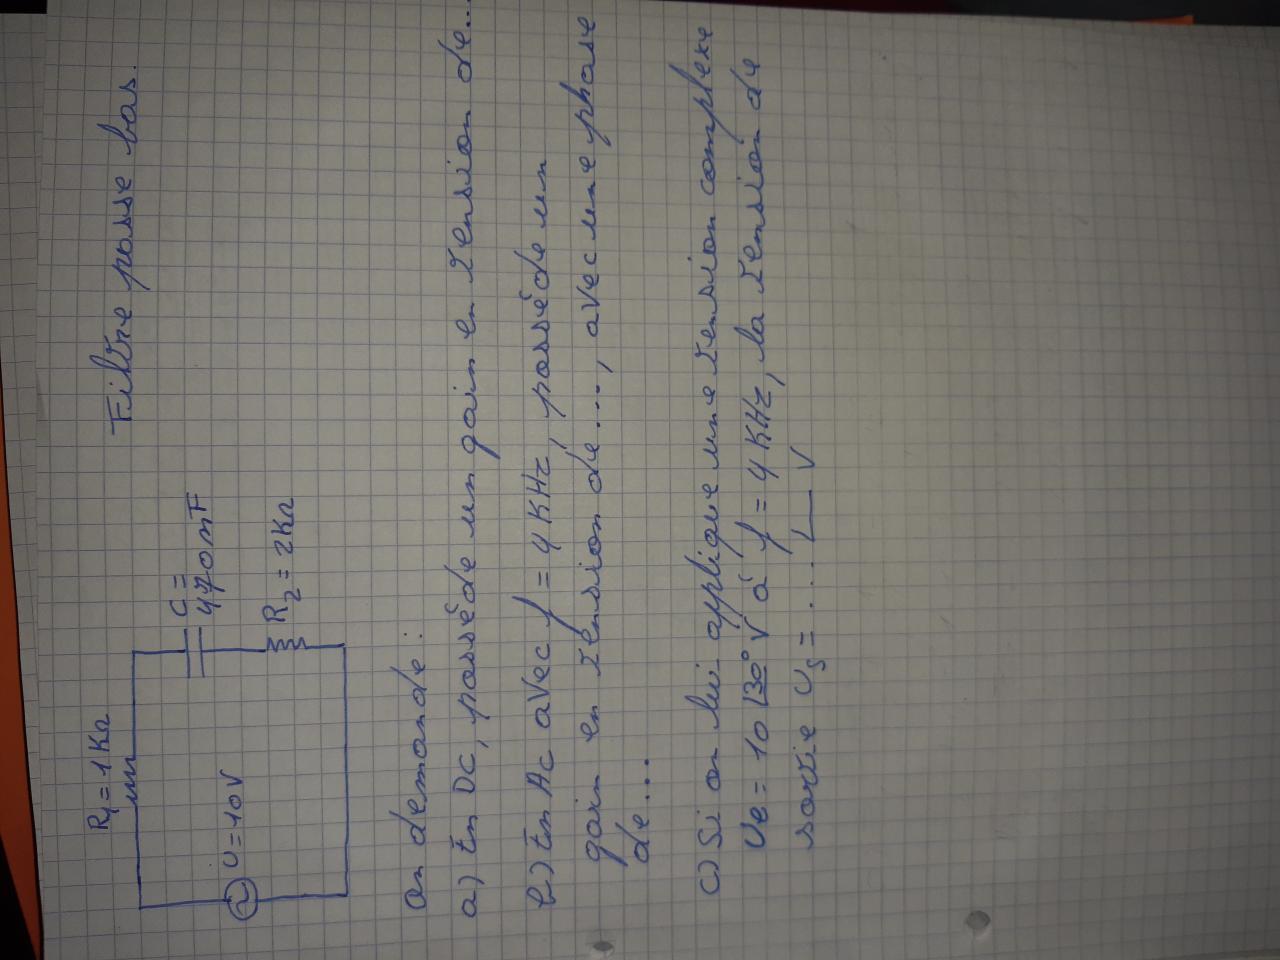 Filtre passe bas.
R1 = 1 KΩ
C =
470 nF
U = 10V
R2 = 2 KΩ
On demande :
a) En DC, possède un gain en tension de...
b) En AC avec f = 4 KHz, possède un
gain en tension de...., avec une phase
de...
c) Si on lui applique une tension complexe
Ue = 10 ∠30° V à f = 4 KHz, la tension de
sortie Us = .... ∠__ V